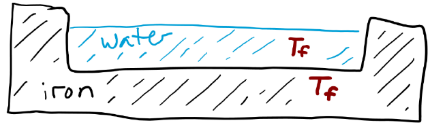 water T_f
iron T_f